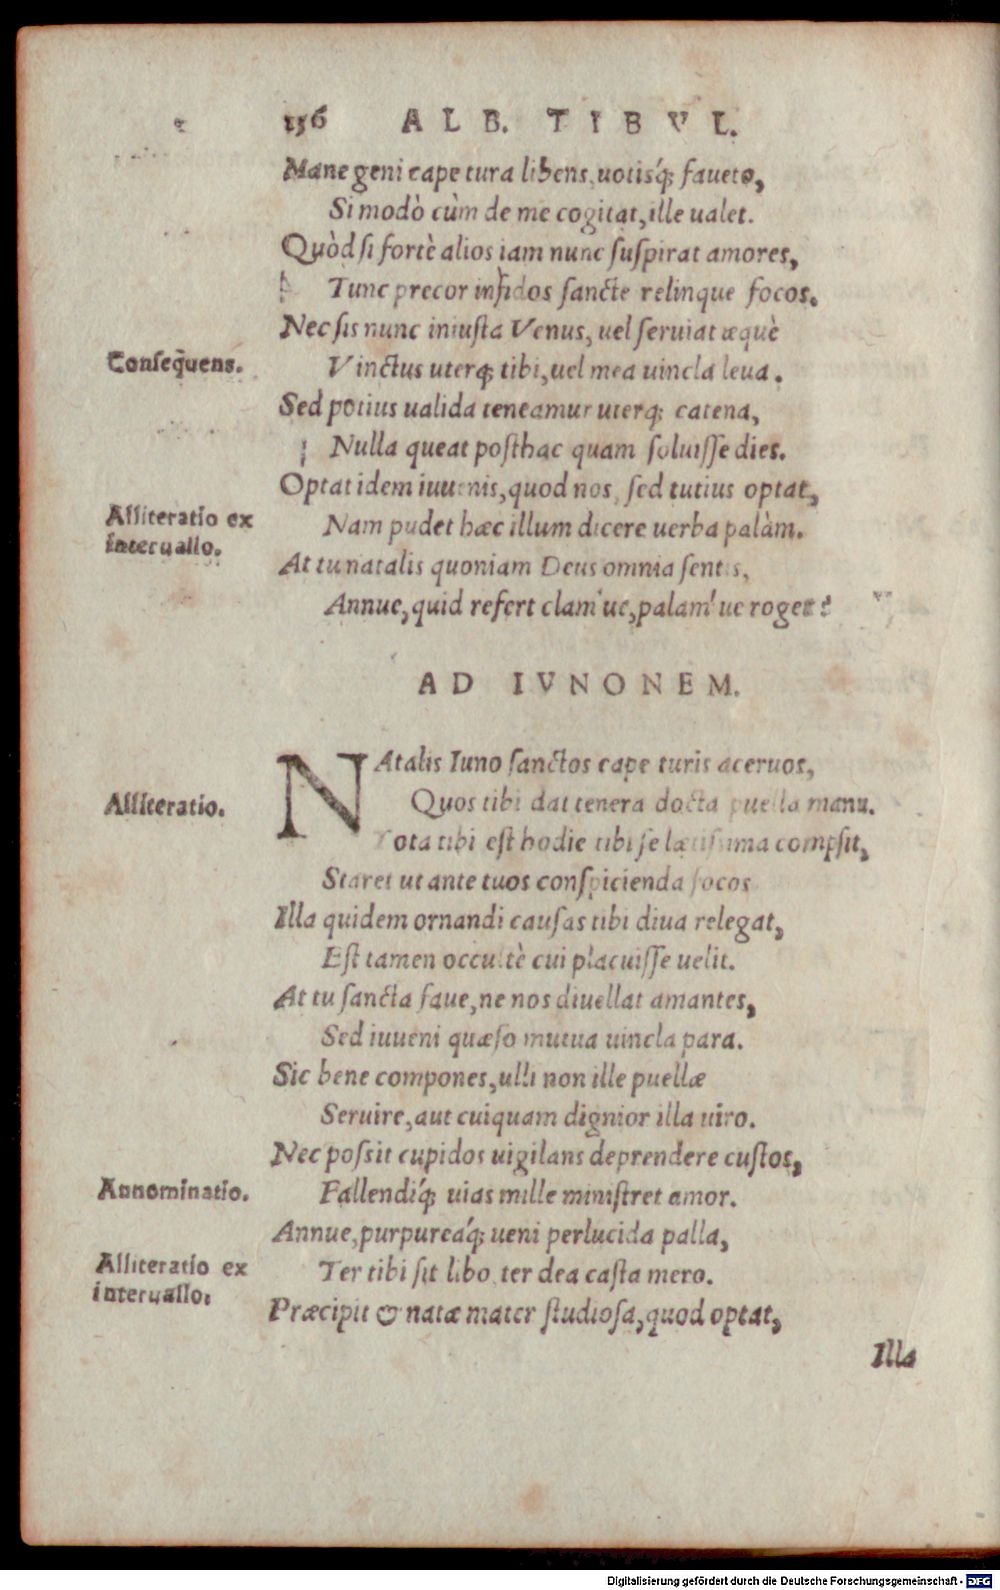 156 ALB. TIBVL.
Mane geni cape tura libens, uotisq́; faueto,
Si modò cùm de me cogitat, ille ualet.
Quòd si fortè alios iam nunc suspirat amores,
Tunc precor infidos sancte relinque focos.
Nec sis nunc iniusta Venus, uel seruiat æquè
Conseq̃uens.
Vinctus uterq; tibi, uel mea uincla leua.
Sed potius ualida teneamur uterq; catena,
Nulla queat posthac quam soluisse dies.
Optat idem iuuenis, quod nos, sed tutius optat,
Alliteratio ex
interuallo.
Nam pudet hæc illum dicere uerba palàm.
At tu natalis quoniam Deus omnia sentis,
Annue, quid refert clam'ue, palam'ue roget?
AD IVNONEM.
NAtalis Iuno sanctos cape turis aceruos,
Alliteratio.
Quos tibi dat tenera docta puella manu.
Tota tibi est hodie tibi se lætissima compsit,
Staret ut ante tuos conspicienda focos
Illa quidem ornandi causas tibi diua relegat,
Est tamen occultè cui placuisse uelit.
At tu sancta faue, ne nos diuellat amantes,
Sed iuueni quæso mutua uincla para.
Sic bene compones, ulli non ille puellæ
Seruire, aut cuiquam dignior illa uiro.
Nec possit cupidos uigilans deprendere custos,
Annominatio.
Fallendiq́; uias mille ministret amor.
Annue, purpureaq́; ueni perlucida palla,
Alliteratio ex
interuallo.
Ter tibi fit libo, ter dea casta mero.
Præcipit & natæ mater studiosa, quod optat,
Illa
Digitalisierung gefördert durch die Deutsche Forschungsgemeinschaft - DFG